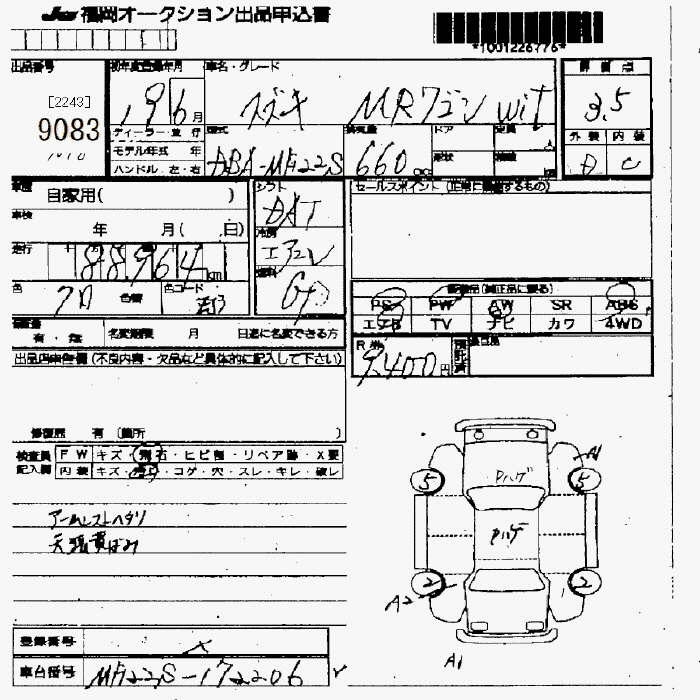 JU 福岡オークション出品申込書
*1001226776*
出品番号 初年度登録年月 車名・グレード 評価点
[2243]
9083
19 6 月 スズキ MRワゴン wit 3.5
ディーラー・並行 型式 排気量 ドア 定員 外装 内装
モデル年式 年 形状
ハンドル 左・右 DBA-MF22S 660 D C
車歴 自家用( ) シフト セールスポイント(正常に機能するもの)
DAT
車検 年 月( 日) 冷房
エアコン
走行 88,964 km 燃料
色 色替 色コード
装備品(純正品に限る)
PS PW AW SR ABS
エアB TV ナビ カワ 4WD
有・無 名変期限 月 日迄に名変できる方
R券 9,400円 預託済
出品店申告欄(不良内容・欠品など具体的に記入して下さい)
修復歴 有 (箇所 )
検査員 FW キズ・飛石・ヒビ割・リペア跡・X要
記入欄 内装 キズ・汚れ・コゲ・穴・スレ・キレ・破レ
アームレストヘタリ
天張黄ばみ
A1
5 Pハゲ 5
Pハゲ
2 2
A2
A1
登録番号
車台番号 MF22S-172206